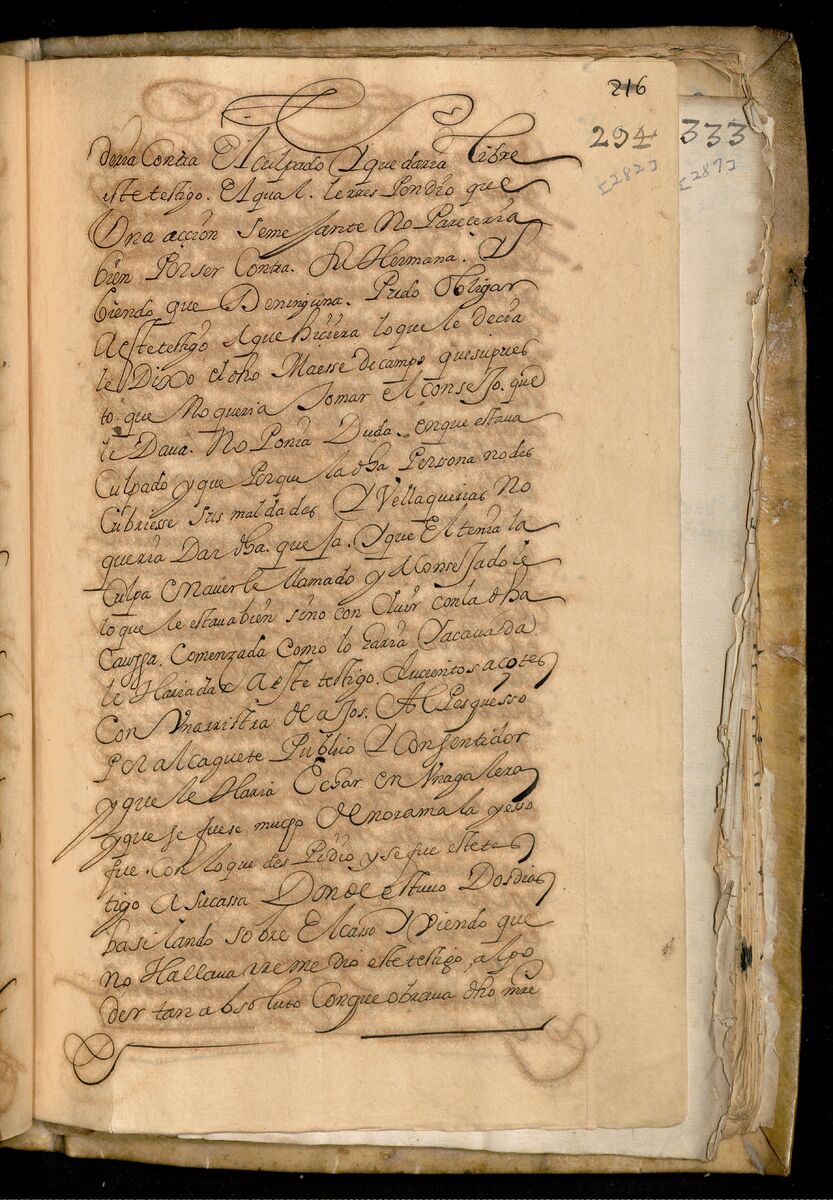 216
294 333
[282] [287]
deria Contra El Culpado Y que daria libre
este testigo. El qual. le rres Pondio que
Una accion seme Jante No Pareceria
bien Por ser Contra. Su Hermana. Y
biendo que De ninguna. Pudo Obligar
A este testigo A que hiciera lo que le decia
le Dixo el dho Maesse de campo que supues
to. que No queria tomar el conse Jo. que
le Daua. No Ponia Duda. en que estaua
Culpado y que Porque la dha Persona no des
Cubriesse sus maldades Y Vellaquerias No
queria Dar dha. que Ja. Y que El tenia la
Culpa en auerle llamado y AConse Jado le
lo que le estaua bien sino con Cluir con la dha
Caussa. Comenzada Como lo haria Y acauada
le Haria dar A este testigo. Ducientos acotes
Con Una rristra de a Jos. Al Pesquesso
Por alcaguete Publico Y Consentidor
y que le Haria Echar en Una galera
y que se fuese mucho de noramala y esso
fue. Con lo que des Pidio y se fue este tes
tigo A su cassa Donde estuuo Dos dias
basilando sobre El casso Y viendo que
No Hallaua rre me dio este testigo, al po
der tan absoluto Con que obraua dho mre